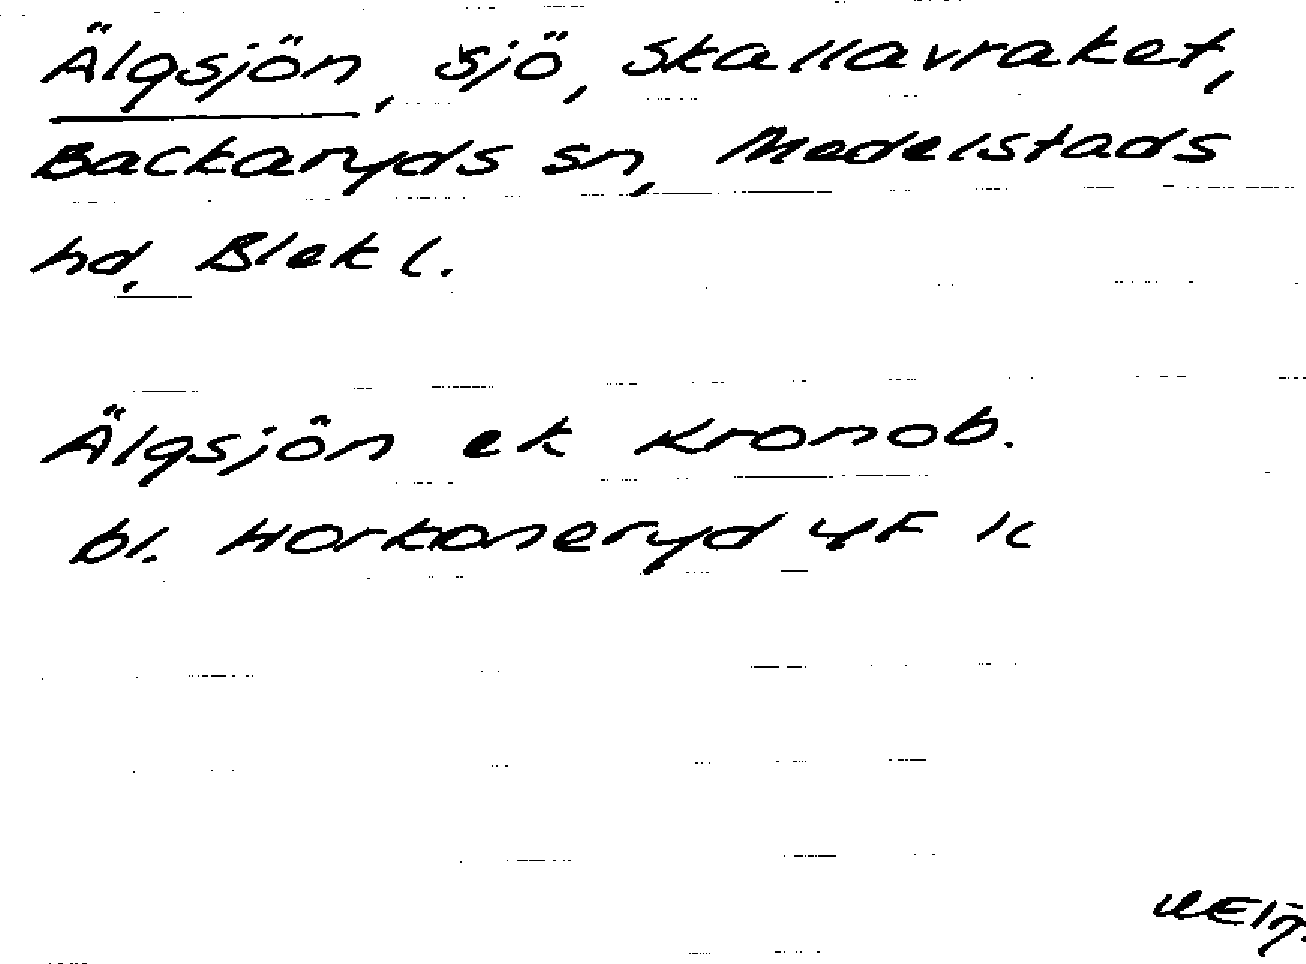 Älgsjön, sjö, Skallavraket,
Backaryds sn, Medelstads
hd, Blek l.
Älgsjön ek Kronob.
bl. Horkoneryd 4F